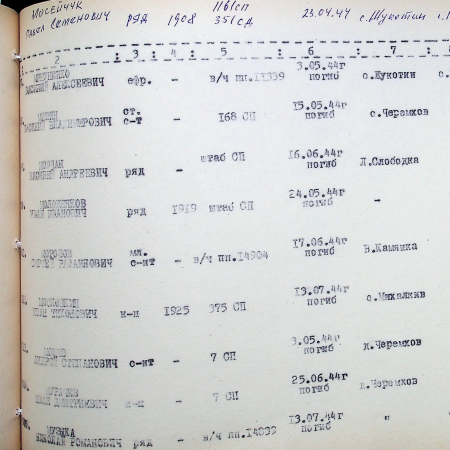 Мосейчук 1161сп
Павел Семенович ряд 1908 351сд 23.04.44 с.Жукотин
2 : 3 : 4 : 5 : 6 : 7 : 8
3.05.44г
ВАСИЛИЙ АЛЕКСЕЕВИЧ ефр. - в/ч пп.11339 погиб с.Жукотин
ст. 15.05.44г
с-т - 168 СП погиб с.Черемхов
штаб СП 16.06.44г
АНДРЕЕВИЧ ряд - погиб Л.Слободка
24.05.44г
ИВАН ИВАНОВИЧ ряд 1919 штаб СП погиб -
МОРОЗОВ мл. 17.06.44г
с-нт - в/ч пп.14904 погиб В.Камянка
13.07.44г
к-н 1925 375 СП погиб с.Михалков
3.05.44г
СТЕПАНОВИЧ с-нт - 7 СП погиб д.Черемхов
25.06.44г
ИВАН ДМИТРИЕВИЧ - 7 СП погиб д.Черемхов
МУЗЫКА 13.07.44г
НИКОЛАЙ РОМАНОВИЧ ряд - в/ч пп.14839 погиб "